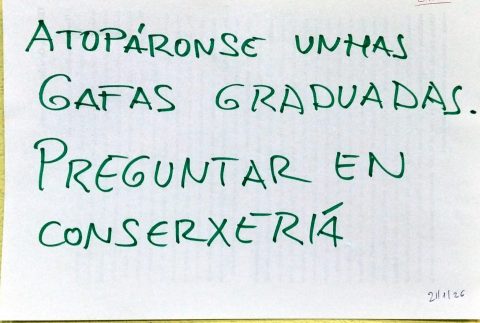 ATOPÁRONSE UNHAS
GAFAS GRADUADAS.
PREGUNTAR EN
CONSERXERIÁ
21/1/26